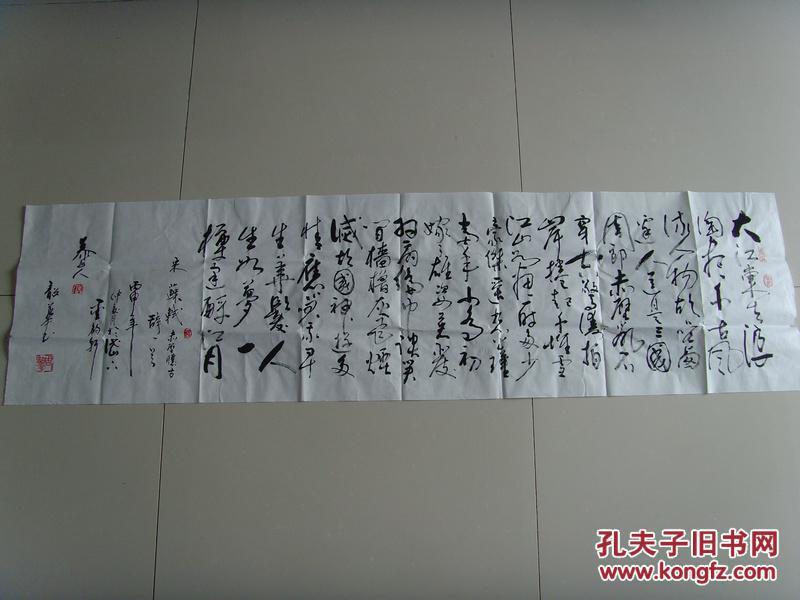 大江東去浪
淘盡千古風
流人物故壘西
邊人道是三國
周郎赤壁亂石
穿空驚濤拍
岸捲起千堆雪
江山如畫一時多少
豪傑遙想公瑾
當年小喬初
嫁了雄姿英發
羽扇綸巾談笑
間檣櫓灰飛煙
滅故國神遊多
情應笑我早
生華髮人
生如夢一
樽還酹江月
宋蘇軾赤壁懷古
年
泰山人
孔夫子旧书网
www.kongfz.com